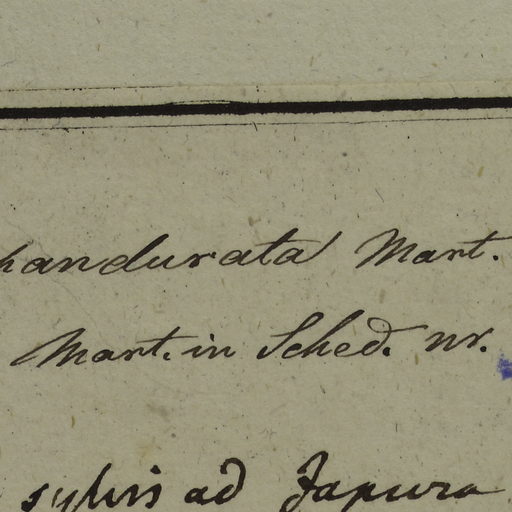 pandurata Mart.
Mart. in Sched. nr.
sylvis ad Japura